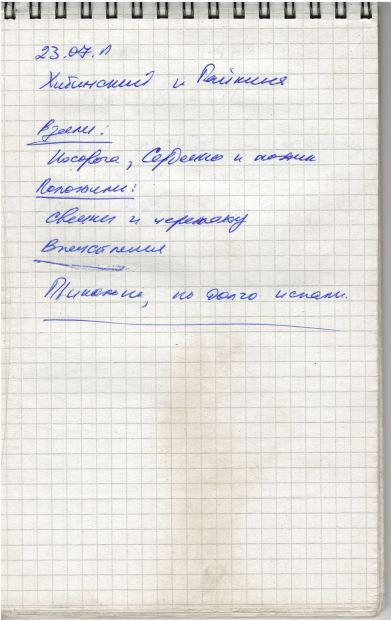 23.07.11
Хибинский и Райкиня
Взяли:
Носорога, Сердечко и ножик
Положили:
свечки и черепаху
Впечатления
Типично, но долго искали.